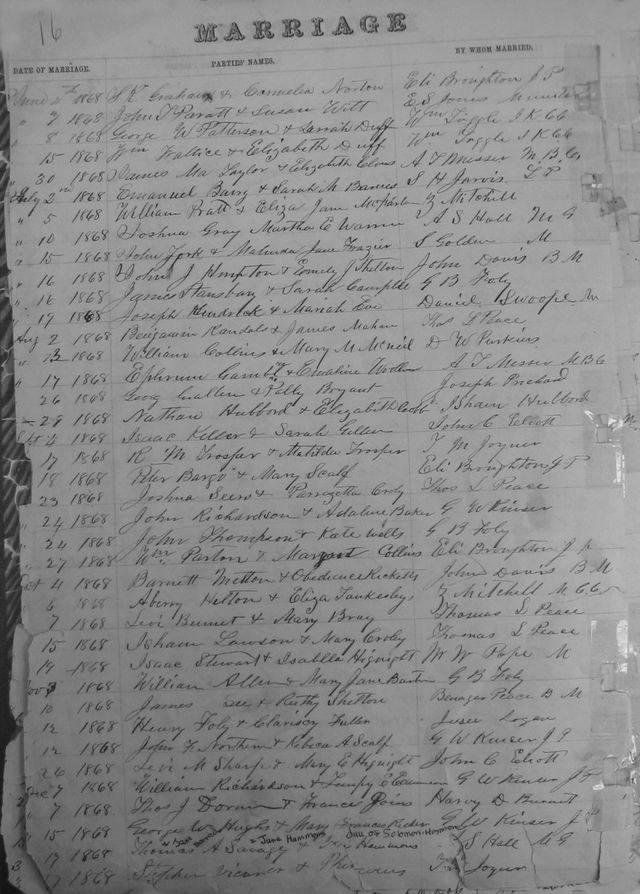 16
MARRIAGE
DATE OF MARRIAGE. PARTIES' NAMES. BY WHOM MARRIED.
June 1868 Graham & Cornelia Norton Eli Broughton J P
" 7 1868 John Paratt & Susan Witt E S Jones
" 8 1868 George W Patterson & Sarrah Duff Wm Tuggle J K 66
" 15 1868 Wm Wallice & Elizabeth Duff Wm Tuggle J K 66
" 30 1868 James Ma Taylor & Elizabeth A T Messer M.B.C.
July 2nd 1868 Emanuel Bairy & Sarah M Barnes S H Jarvis
" 5 1868 William Pratt & Eliza Jane Z Mitchill
" 10 1868 Joshua Gray Martha E A S Hall M G
" 15 1868 John York & Malinda Jane Frazier S Golden M
" 16 1868 John J Hmpton & Emely J Shelton John Davis B M
" 16 1868 James Stansbary & Sarah Campbell G B Foly
" 19 1868 Joseph Hendrick & Mariah Eve Daniel Swoope M
Aug 2 1868 Benjamin Randols & James Mahan Thos L Peace
" 13 1868 William Collins & Mary M McNeil D W Parkins
" 17 1868 Ephrum Gambil & Emaline A T Messer M B C
" 26 1868 Georg & Polly Bryant Joseph Prichard
" 29 1868 Nathan Hubbord & Elizabeth Cobb Isham Hubbord
Sept 1868 Isaac Keller & Sarah Gillem John C Eliott
" 17 1868 R M Trosper & Matilda Trosper T M Joyner
" 18 1868 Peter Bargo & Mary Scalf Eli Broughton J P
" 23 1868 Joshua & Parrizetta Croly Thos L Peace
" 24 1868 John Richardson & Adaline Baker G W Kinser
" 24 1868 John Thompson & Kate Wills G B Foly
" 27 1868 Wm Parton & Margaret Collins Eli Broughton J P
Oct 4 1868 Barnett & Obedience Ricketts John Davis B M
" 6 1868 Aberry Helton & Eliza Tankesley Z Mitchill M.G.
" 7 1868 Levi Bennet & Mary Bray Thomas L Peace
" 15 1868 Isham Lawson & Mary Croly Thomas L Peace
" 19 1868 Isaac Stewart & Isabella Hignight W W Pope M
Nov 3 1868 William Allen & Mary Jane Barton G B Foly
" 10 1868 James Lee & Ruthy Shelton Benager Peace B M
" 12 1868 Henry Foly & Clariscy Fuller Jesse Logan
" 12 1868 John Northern & Rebeca A Scalf G W Kinser J P
" 26 1868 Levi M Sharp & Mary C Hignight John C Eliott
Dec 7 1868 William Richardson & Tempy E G W Kinser J P
" 7 1868 Thos J Doram & Frances Goins Harvy D Burnett
" 15 1868 George W Hughs & Mary Frances G W Kinser J P
& Jane Hammons Dau of Solomon Hammons
" 17 1868 Thomas A Savage & Hammons S Hall M G
17 1868 Stephen & Joyner